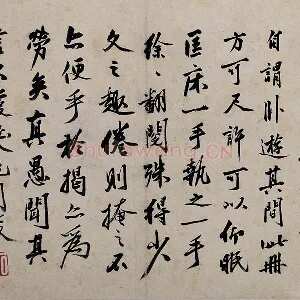 自謂卧遊其間此冊
方可尺許可以仰眠
匡床一手執之一手
徐〻翻閱殊得少
文之趣倦則掩之不
亦便乎於揭亦為
勞矣真愚聞其